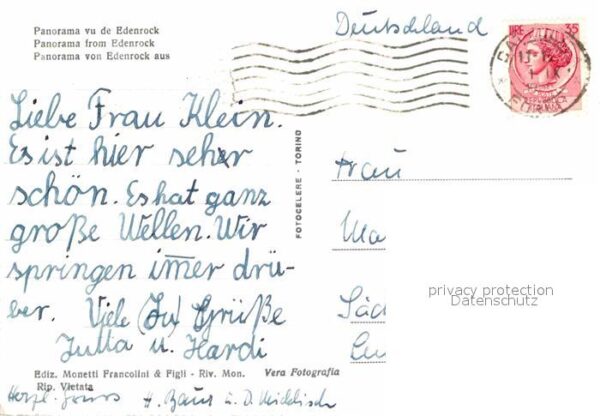 Panorama vu de Edenrock
Panorama from Edenrock
Panorama von Edenrock aus
Deutschland
LIRE 35
Liebe Frau Klein.
Es ist hier sehr
schön. Es hat ganz
große Wellen. Wir
springen im̄er drü-
ber. Viele (Ju) Grüße
Jutta u. Hardi
FOTOCELERE - TORINO
Frau
Ma
privacy protection
Datenschutz
Ediz. Monetti Francolini & Figli - Riv. Mon.
Vera Fotografia
Rip. Vietata